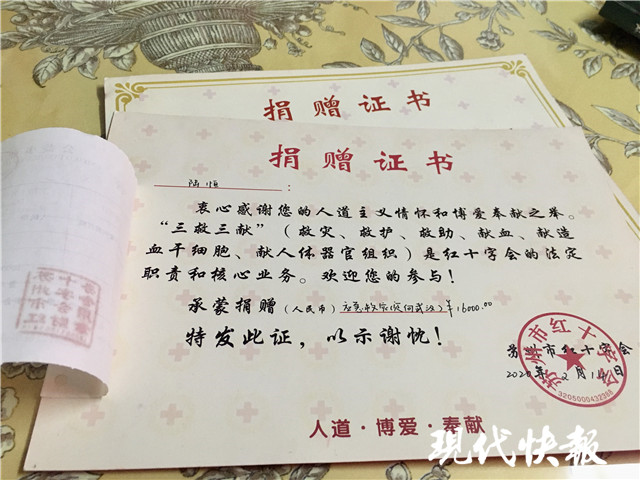 捐赠证书
捐赠证书
陆恒：
衷心感谢您的人道主义情怀和博爱奉献之举。
“三救三献”（救灾、救护、救助、献血、献造
血干细胞、献人体器官组织）是红十字会的法定
职责和核心业务。欢迎您的参与！
承蒙捐赠（人民币）定向武汉）¥16000.00
特发此证，以示谢忱！
苏州市红十字会
2020年2月14日
苏州市红十字会
3205000432368
人道·博爱·奉献
现代快报